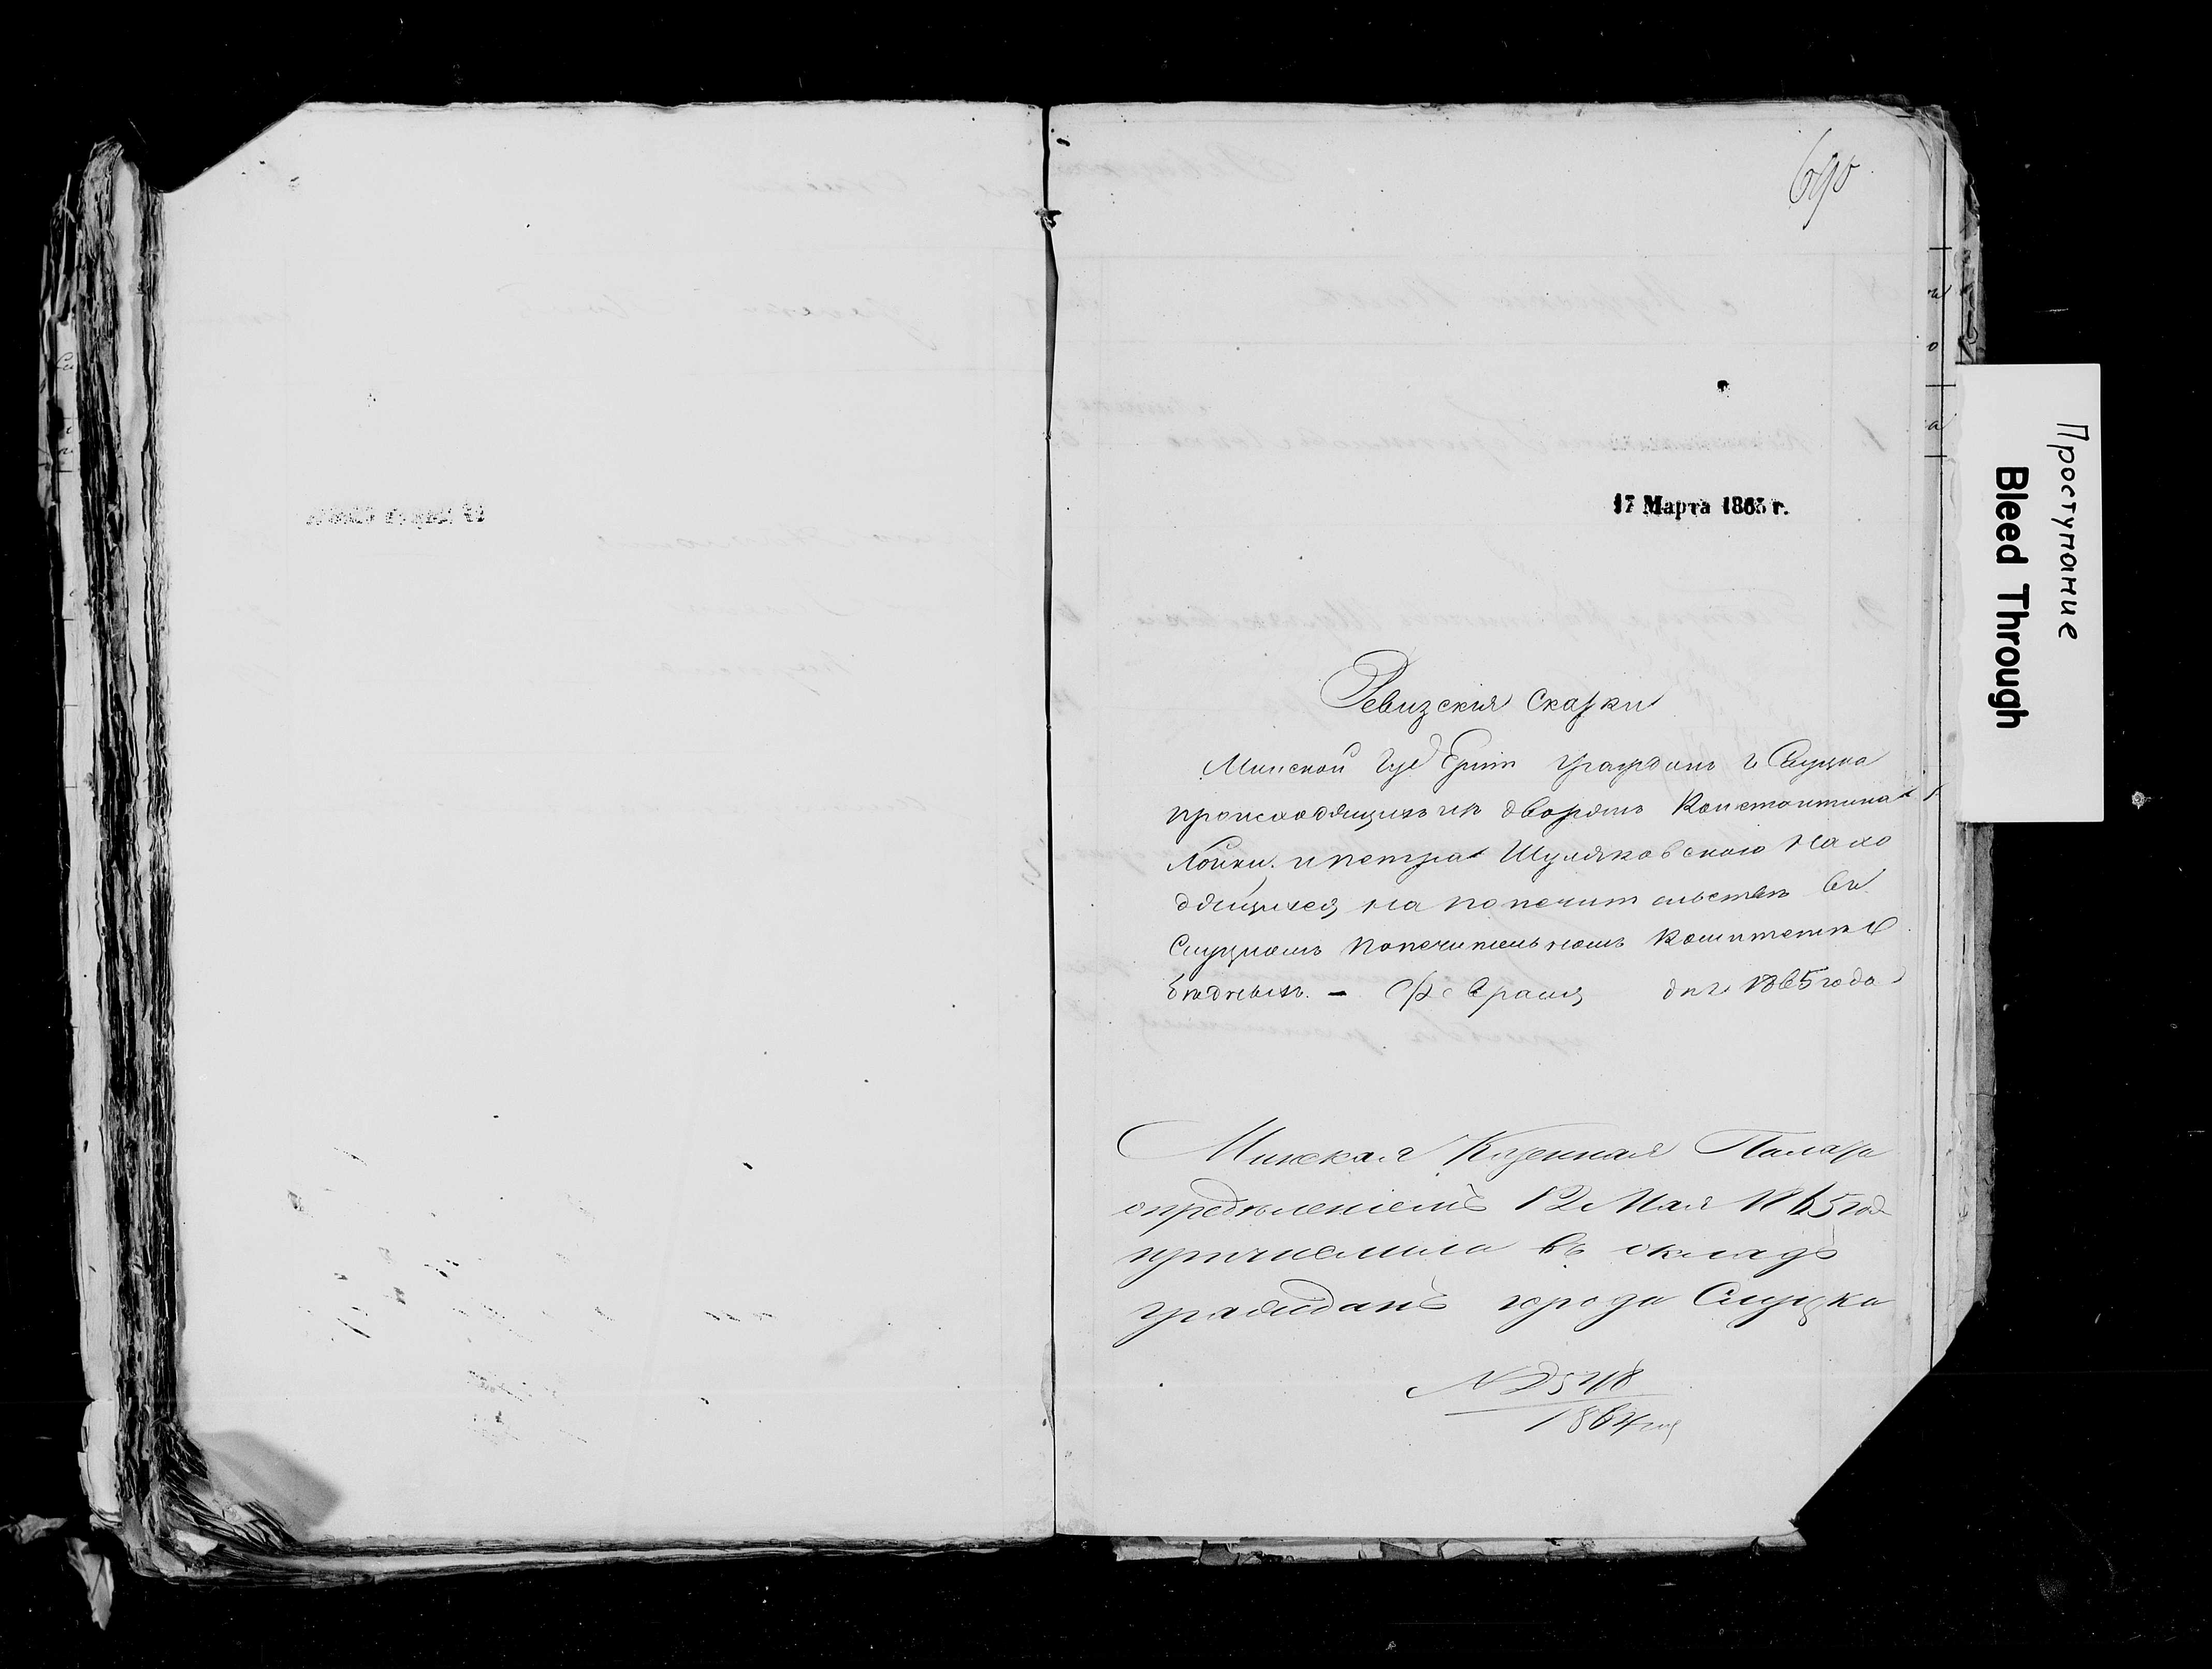 690
17 Марта 1865 г.
Ревизския Сказки
Минской Губернии граждан г Слуцка
происходящих из дворян Константина
Лойки и петра Шуляковского Нахо
дящихся на попечительстве в
Слуцком попечительном комитете
бедных. — Февраля дня 1865 года
Минская Казенная Палата
определениемъ 12 Мая 1865 год
причислила въ окладъ
гражданъ города Слуцка
N 2548
1864
Проступание
Bleed Through